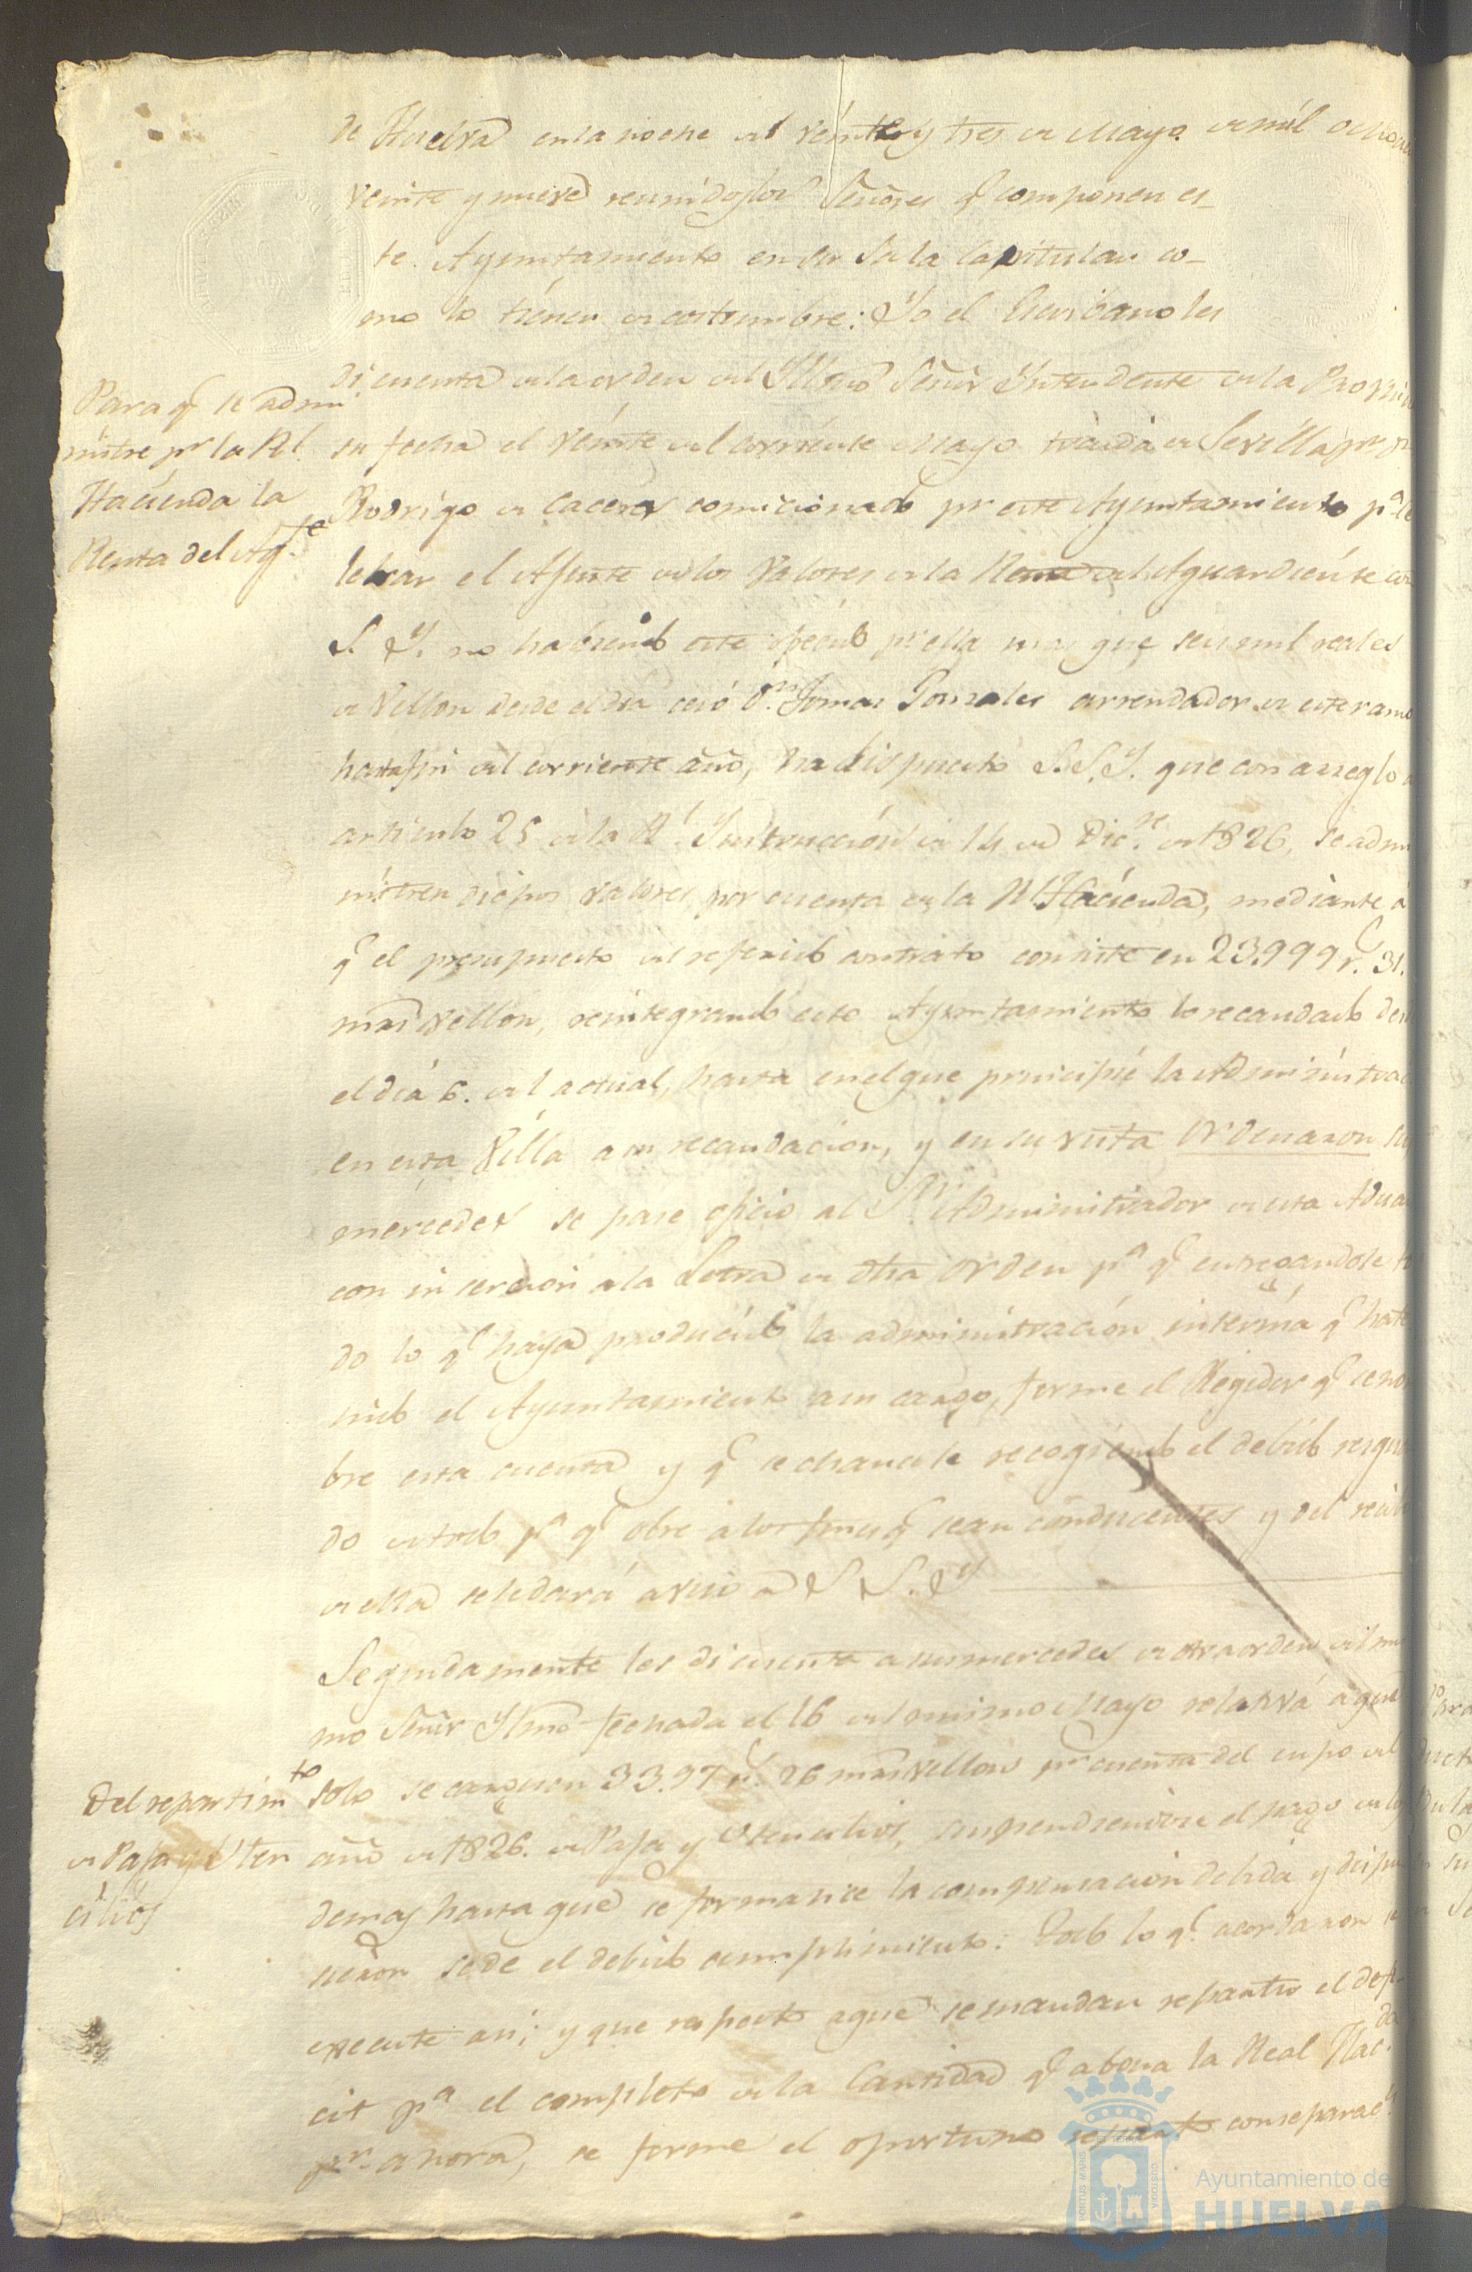 de Huelva en la noche del veinte y tres de Mayo de mil ocho
veinte y nueve reunidos los Señores q.e componen es-
te Ayuntamiento en su Sala Capitular co-
mo lo tienen de costumbre: Yo el Escribano les
di cuenta de la orden del Yllmo Señor Yntendente de la Provin
Para q.e se admi
nistre p.r la Rl.
Hacienda la
Renta del Ag.te
su fecha el veinte del corriente Mayo traida de Sevilla p.r
Rodrigo de Caceres comicionado p.r este Ayuntamiento p.a ce
lebrar el Ajuste de los Valores de la Renta del Aguardiente con
S. Y. no habiendo este ofrecido p.r ella mas que seis mil reales
de Vellon desde el dia cesó D.n Tomas Gonzales arrendador de este ramo
hasta fin del corriente año, ha dispuesto S.S.Y. que con arreglo a
articulo 25 de la R.l Ynstruccion de 14 de Dic.re de 1826, se admi
nistren dichos valores por cuenta de la Rl Hacienda, mediante á
q.e el presupuesto del referido contrato consiste en 23.999 r.s 31.
mrs vellon, reintegrando este Ayuntamiento lo recaudado des
el dia 6. del actual, hasta en el que principie la Administrac
en esta Villa a su recaudacion, y en su vista Ordenaron su
mercedes se pase oficio al S.or Administrador de esta Adua
con insercion a la Letra de dha orden p.a q.e entregandole to
do lo q.e haya producido la administracion interina q.e ha te
nido el Ayuntamiento a su cargo, forme el Regidor q.e se no
bre esta cuenta y q.e se chancele recogiendo el debido resgua
do de todo p.a q.e obre á los fines q.e sean conducentes y del recibo
de ella se le dará aviso a S. S. Y
Segundamente les di cuenta a sus mercedes de otra orden del mis
mo Señor Yllmo fechada el 16 del mismo Mayo relativa á que
Del repartim.to
de Paja y Uten
cilios
solo se carguen 33.97 r.s 26 mrs vellon p.r cuenta del cupo del
año de 1826. de Paja y Utencilios, suspendiendose el pago de los
demas hasta que se formalice la compensacion debida y dispu
sieron se de el debido cumplimiento: Todo lo q.e acordaron se
execute asi; y que respecto a que se mandan repartir el defi-
cit p.a el completo de la Cantidad q.e abona la Real Hac.da
p.r ahora, se forme el oportuno reparto con separac.n
Ayuntamiento de
HUELVA
PORTUS MARIS
CUSTODIA